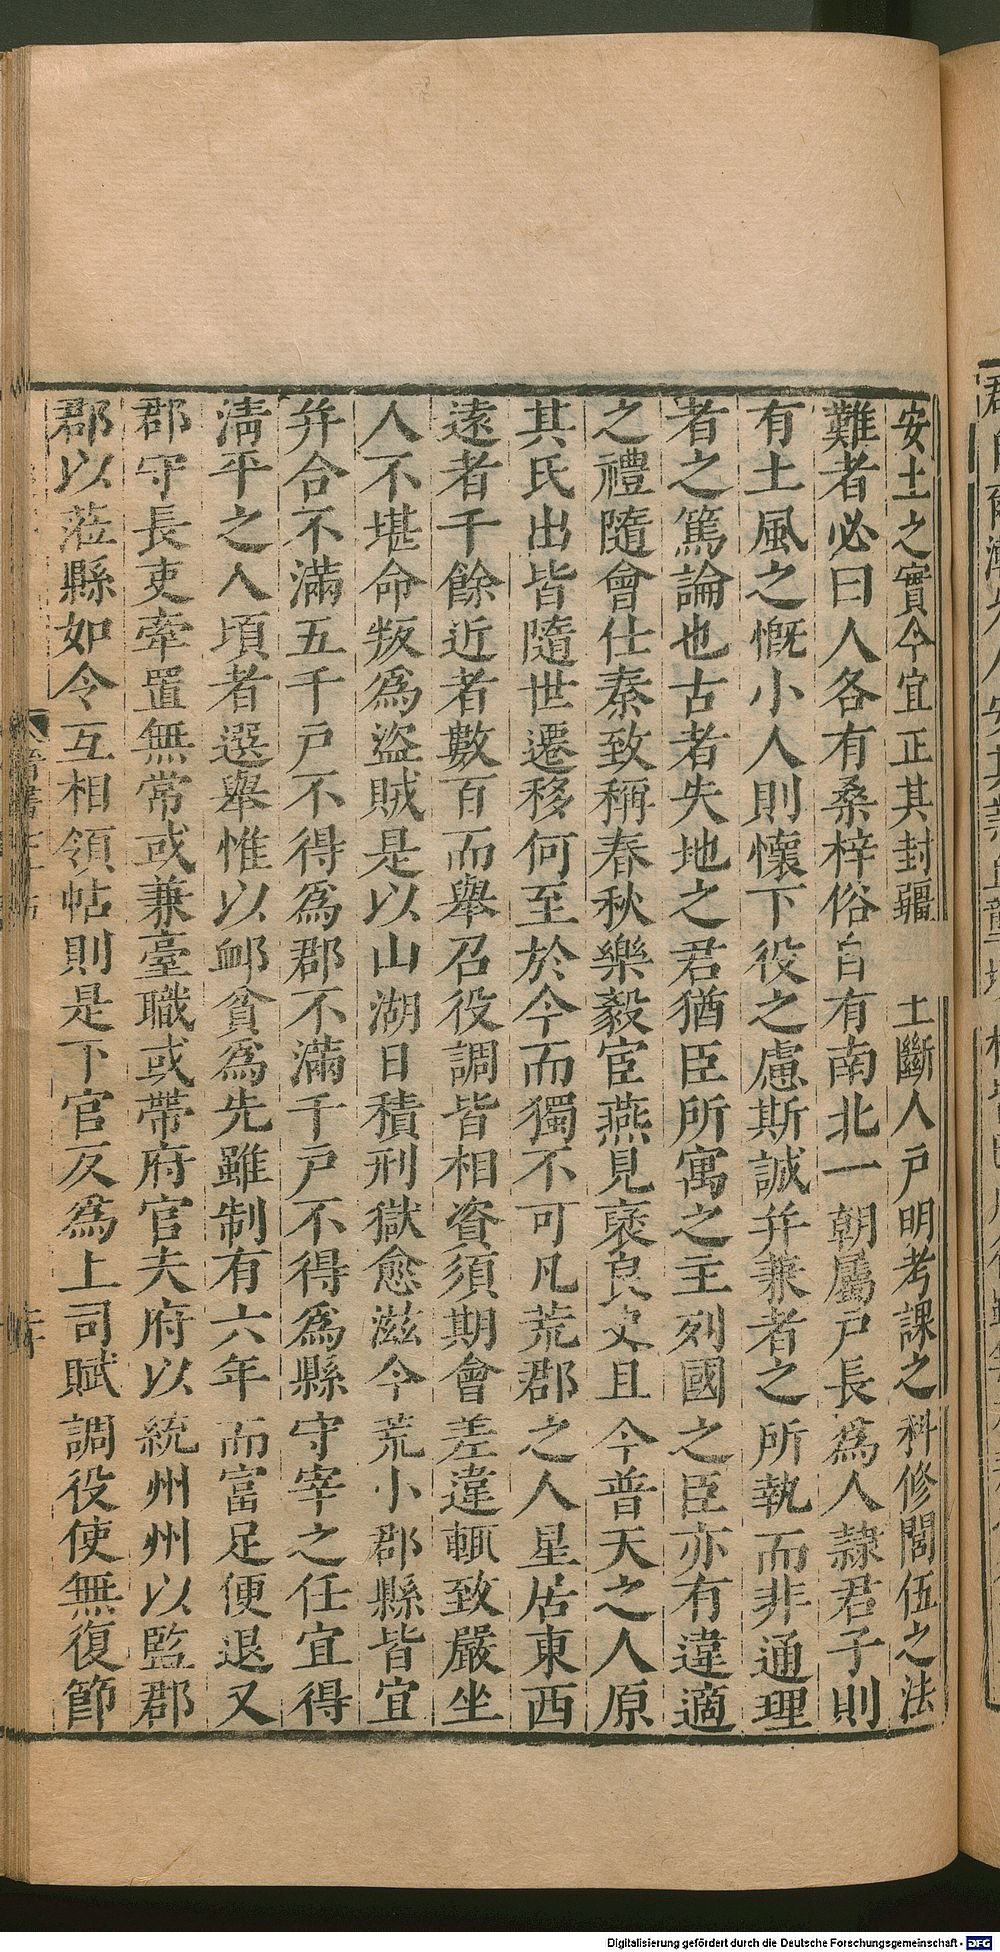 安土之實今宜正其封疆 土斷人戸明考課之科修閭伍之法
難者必曰人各有桑梓俗自有南北一朝屬戸長爲人隷君子則
有土風之慨小人則懷下役之慮斯誠并兼者之所執而非通理
者之篤論也古者失地之君猶臣所寓之主列國之臣亦有違適
之禮隨會仕秦致稱春秋樂毅宦燕見襃良史且今普天之人原
其氏出皆隨世遷移何至於今而獨不可凡荒郡之人星居東西
遠者千餘近者數百而舉召役調皆相資須期會差違輒致嚴坐
人不堪命叛爲盜賊是以山湖日積刑獄愈滋今荒小郡縣皆宜
并合不滿五千戸不得爲郡不滿千戸不得爲縣守宰之任宜得
淸平之人頃者選舉惟以衈貧爲先雖制有六年而富足便退又
郡守長吏牽置無常或兼臺職或帶府官夫府以統州州以監郡
郡以莅縣如令互相領帖則是下官反爲上司賦調役使無復節
晉書
Digitalisierung gefördert durch die Deutsche Forschungsgemeinschaft - DFG